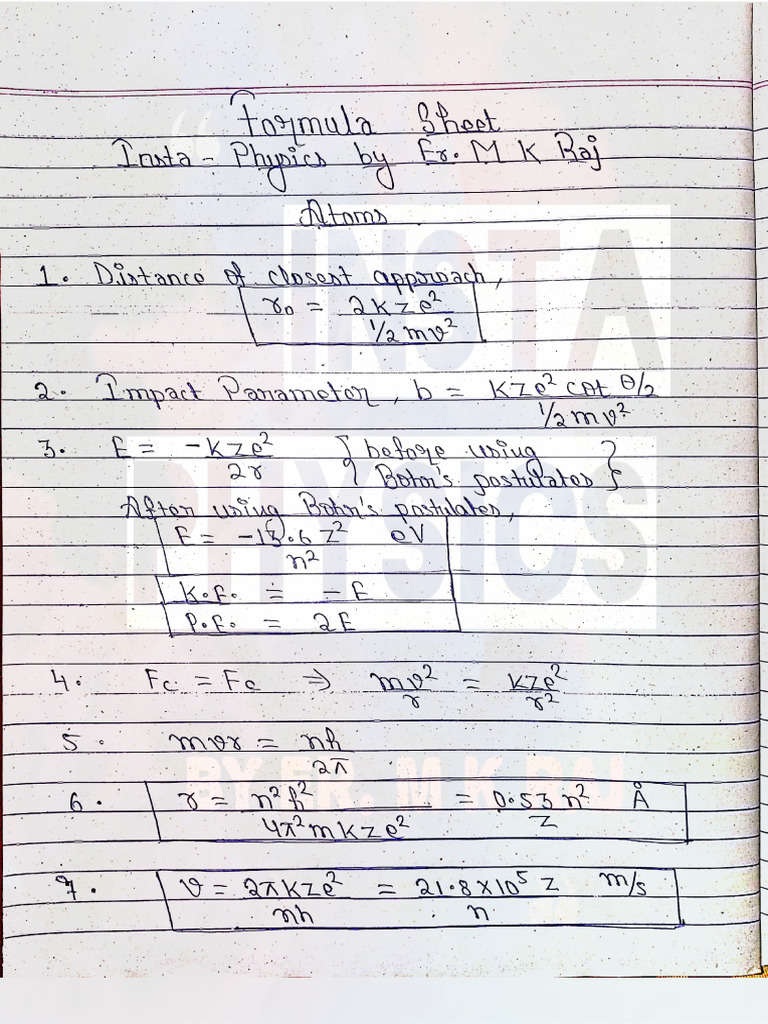 Formula Sheet
Insta - Physics by Er. M K Raj
Atoms
1. Distance of closest approach,
r₀ = 2kze² / ½mv²
2. Impact Parameter, b = kze² cot θ/2 / ½mv²
3. E = -kze² / 2r } before using Bohr's postulates }
After using Bohr's postulates,
E = -13.6 z² / n² eV
K.E. = - E
P.E. = 2E
4. Fc = Fe ⇒ mv² / r = kze² / r²
5. mvr = nh / 2π
6. r = n²h² / 4π²mkze² = 0.53 n² / z Å
7. v = 2πkze² / nh = 21.8×10⁵ z / n m/s
INSTA
PHYSICS
BY ER. M K RAJ